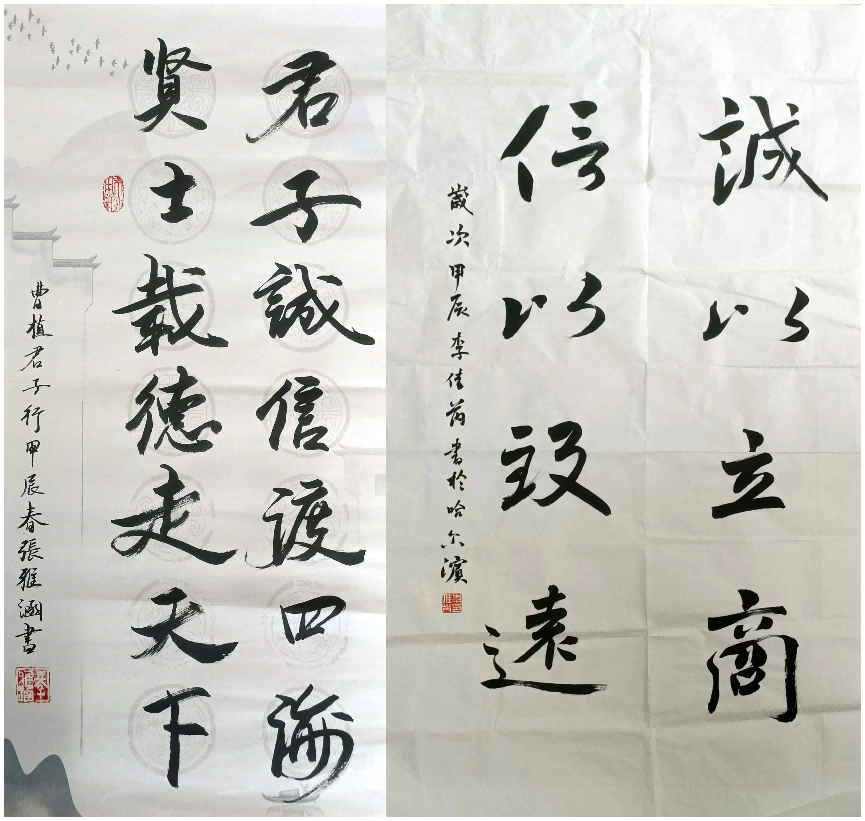 君子誠信渡四海
賢士載德走天下
曹植君子行甲辰春張雅涵書
誠以立商
信以致遠
歲次甲辰李佳芮書於哈尔濱